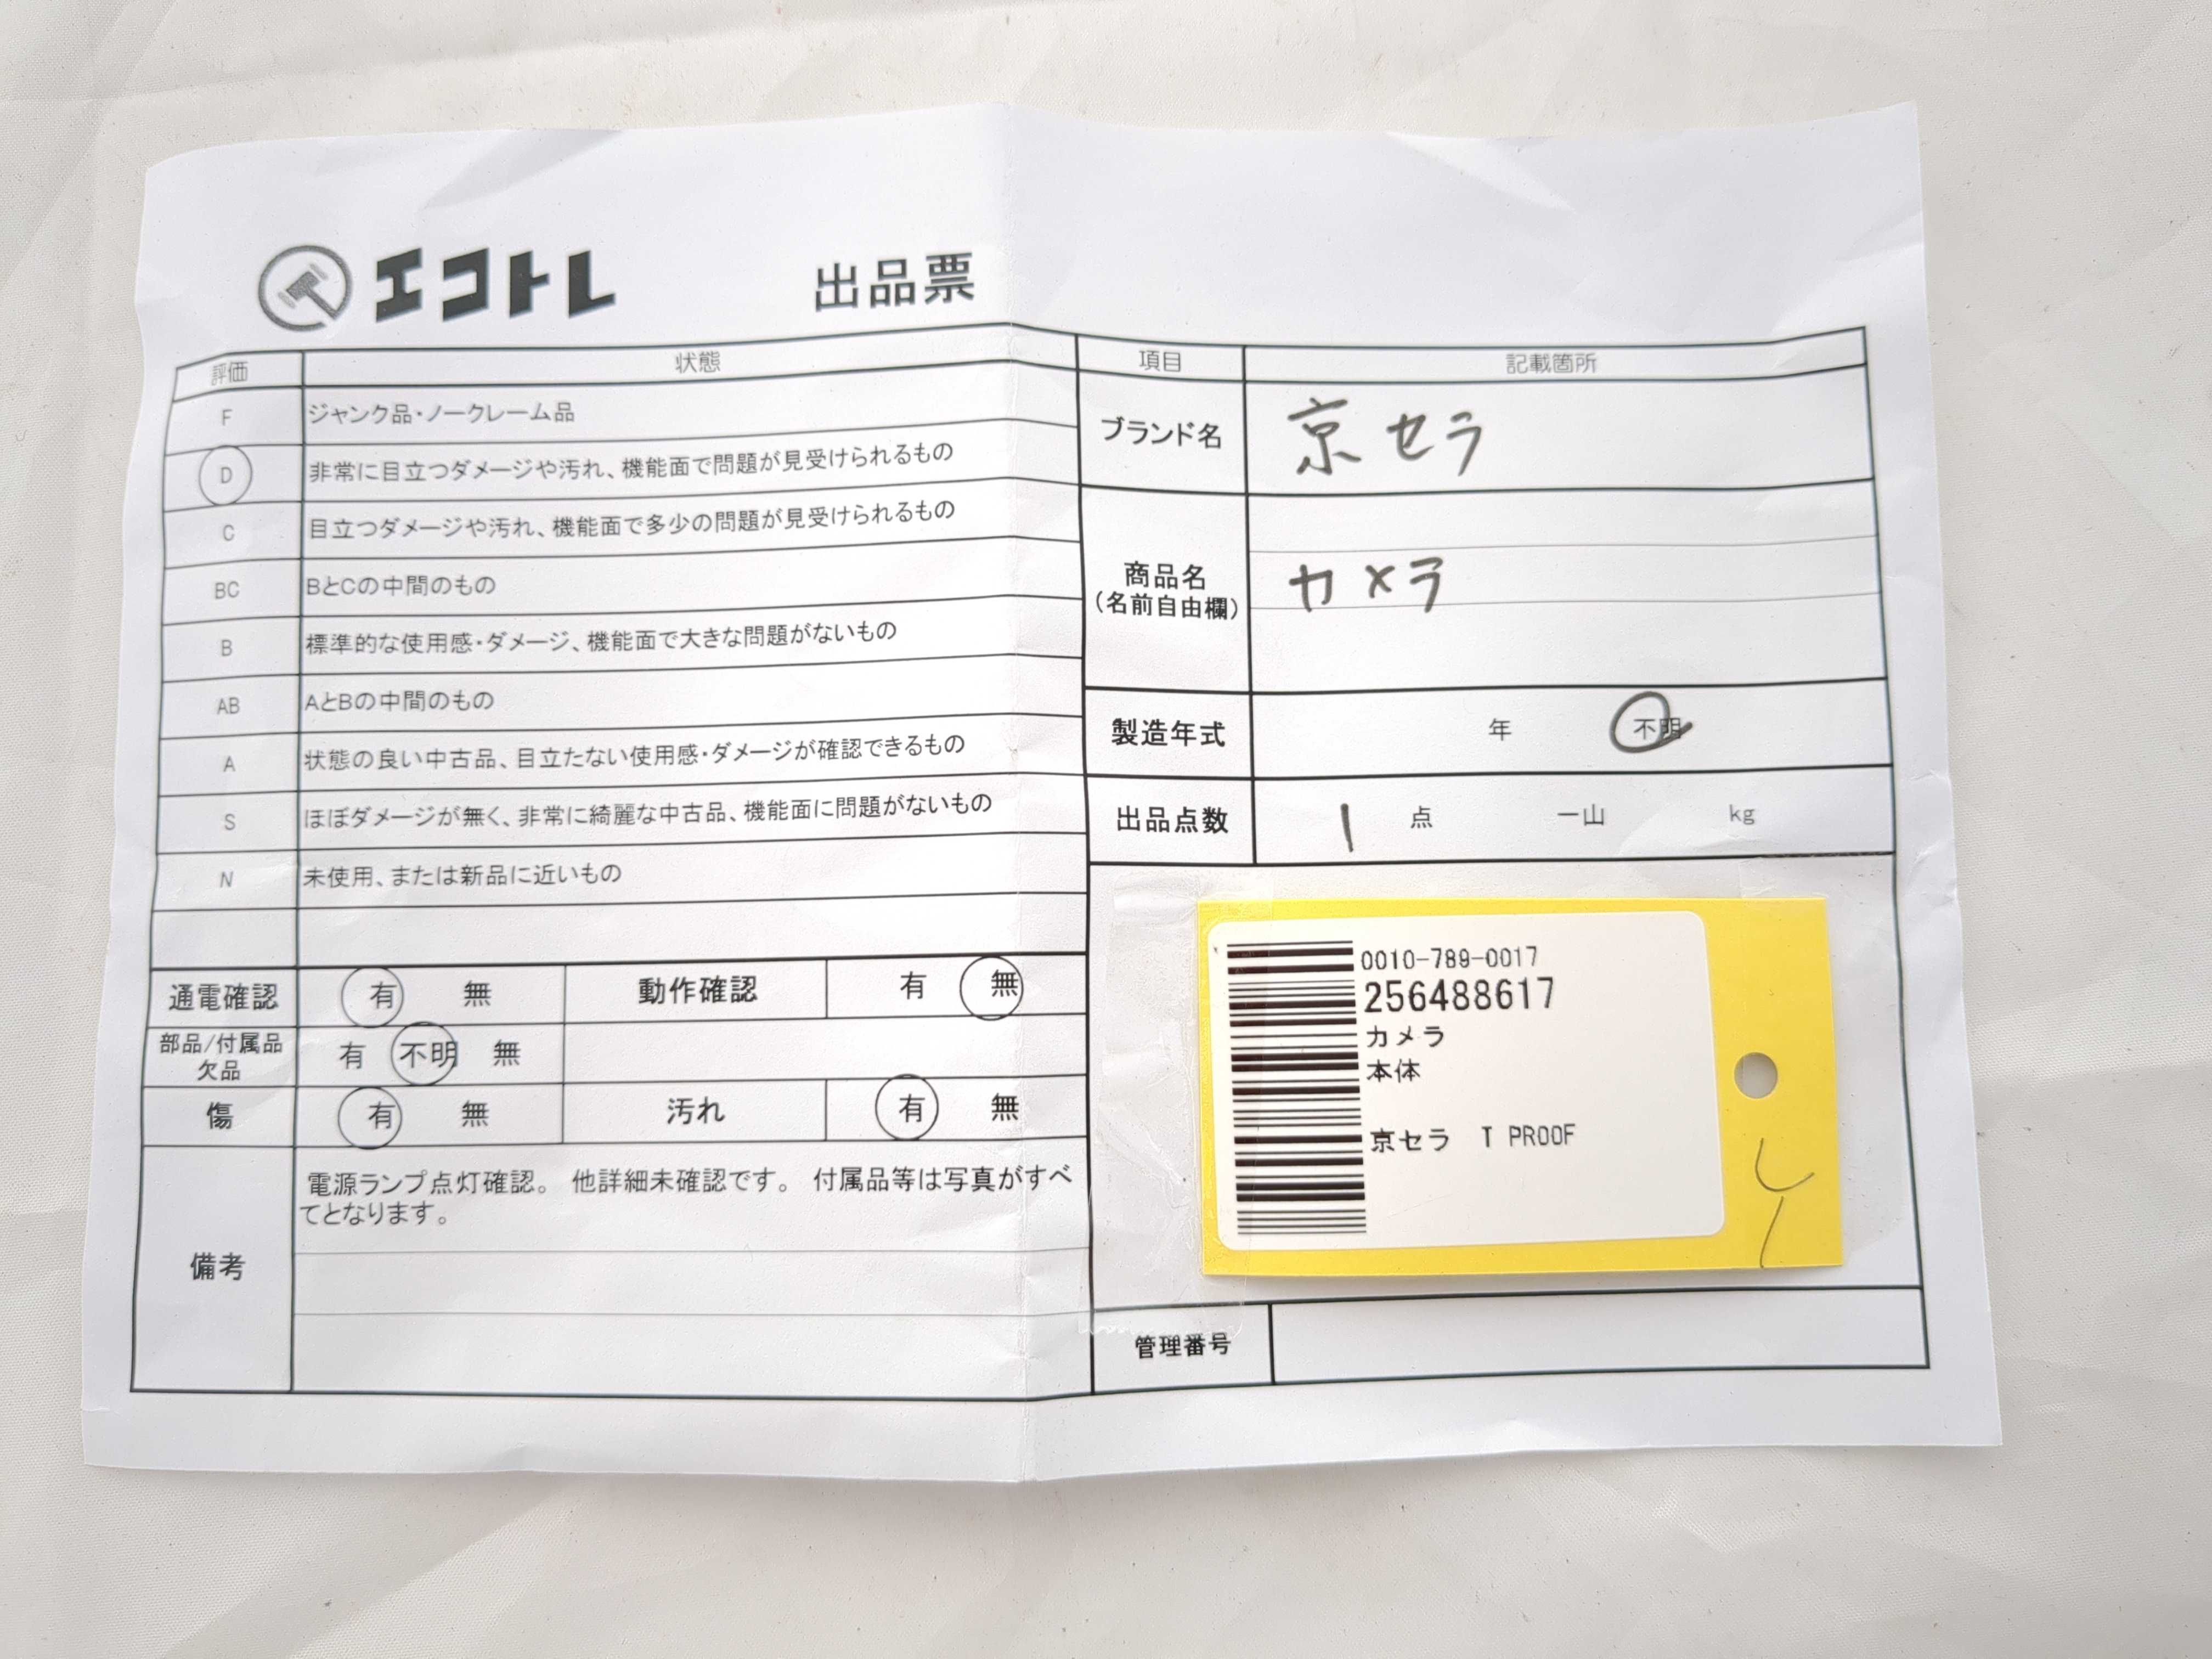 エコトレ 出品票
評価 状態
F ジャンク品・ノークレーム品
D 非常に目立つダメージや汚れ、機能面で問題が見受けられるもの
C 目立つダメージや汚れ、機能面で多少の問題が見受けられるもの
BC BとCの中間のもの
B 標準的な使用感・ダメージ、機能面で大きな問題がないもの
AB AとBの中間のもの
A 状態の良い中古品、目立たない使用感・ダメージが確認できるもの
S ほぼダメージが無く、非常に綺麗な中古品、機能面に問題がないもの
N 未使用、または新品に近いもの
通電確認 有 無 動作確認 有 無
部品/付属品
欠品 有 不明 無
傷 有 無 汚れ 有 無
備考
電源ランプ点灯確認。 他詳細未確認です。 付属品等は写真がすべ
てとなります。
項目 記載箇所
ブランド名 京セラ
商品名
(名前自由欄) カメラ
製造年式 年 不明
出品点数 1 点 一山 kg
0010-789-0017
256488617
カメラ
本体
京セラ T PROOF
管理番号